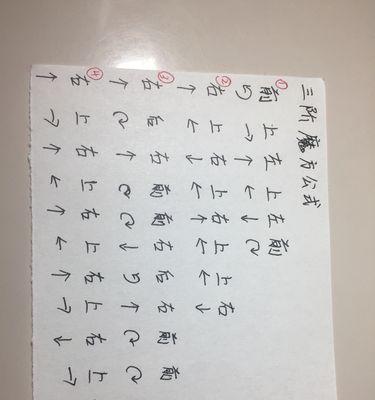 三阶魔方公式
① 前 上 左 上 左 前
② 右 上 右 上 右 上 上 右
③ 右 后 右 前 前 右 后 右 前 前
④ 右 上 右 上 右 上 右 上 右 上